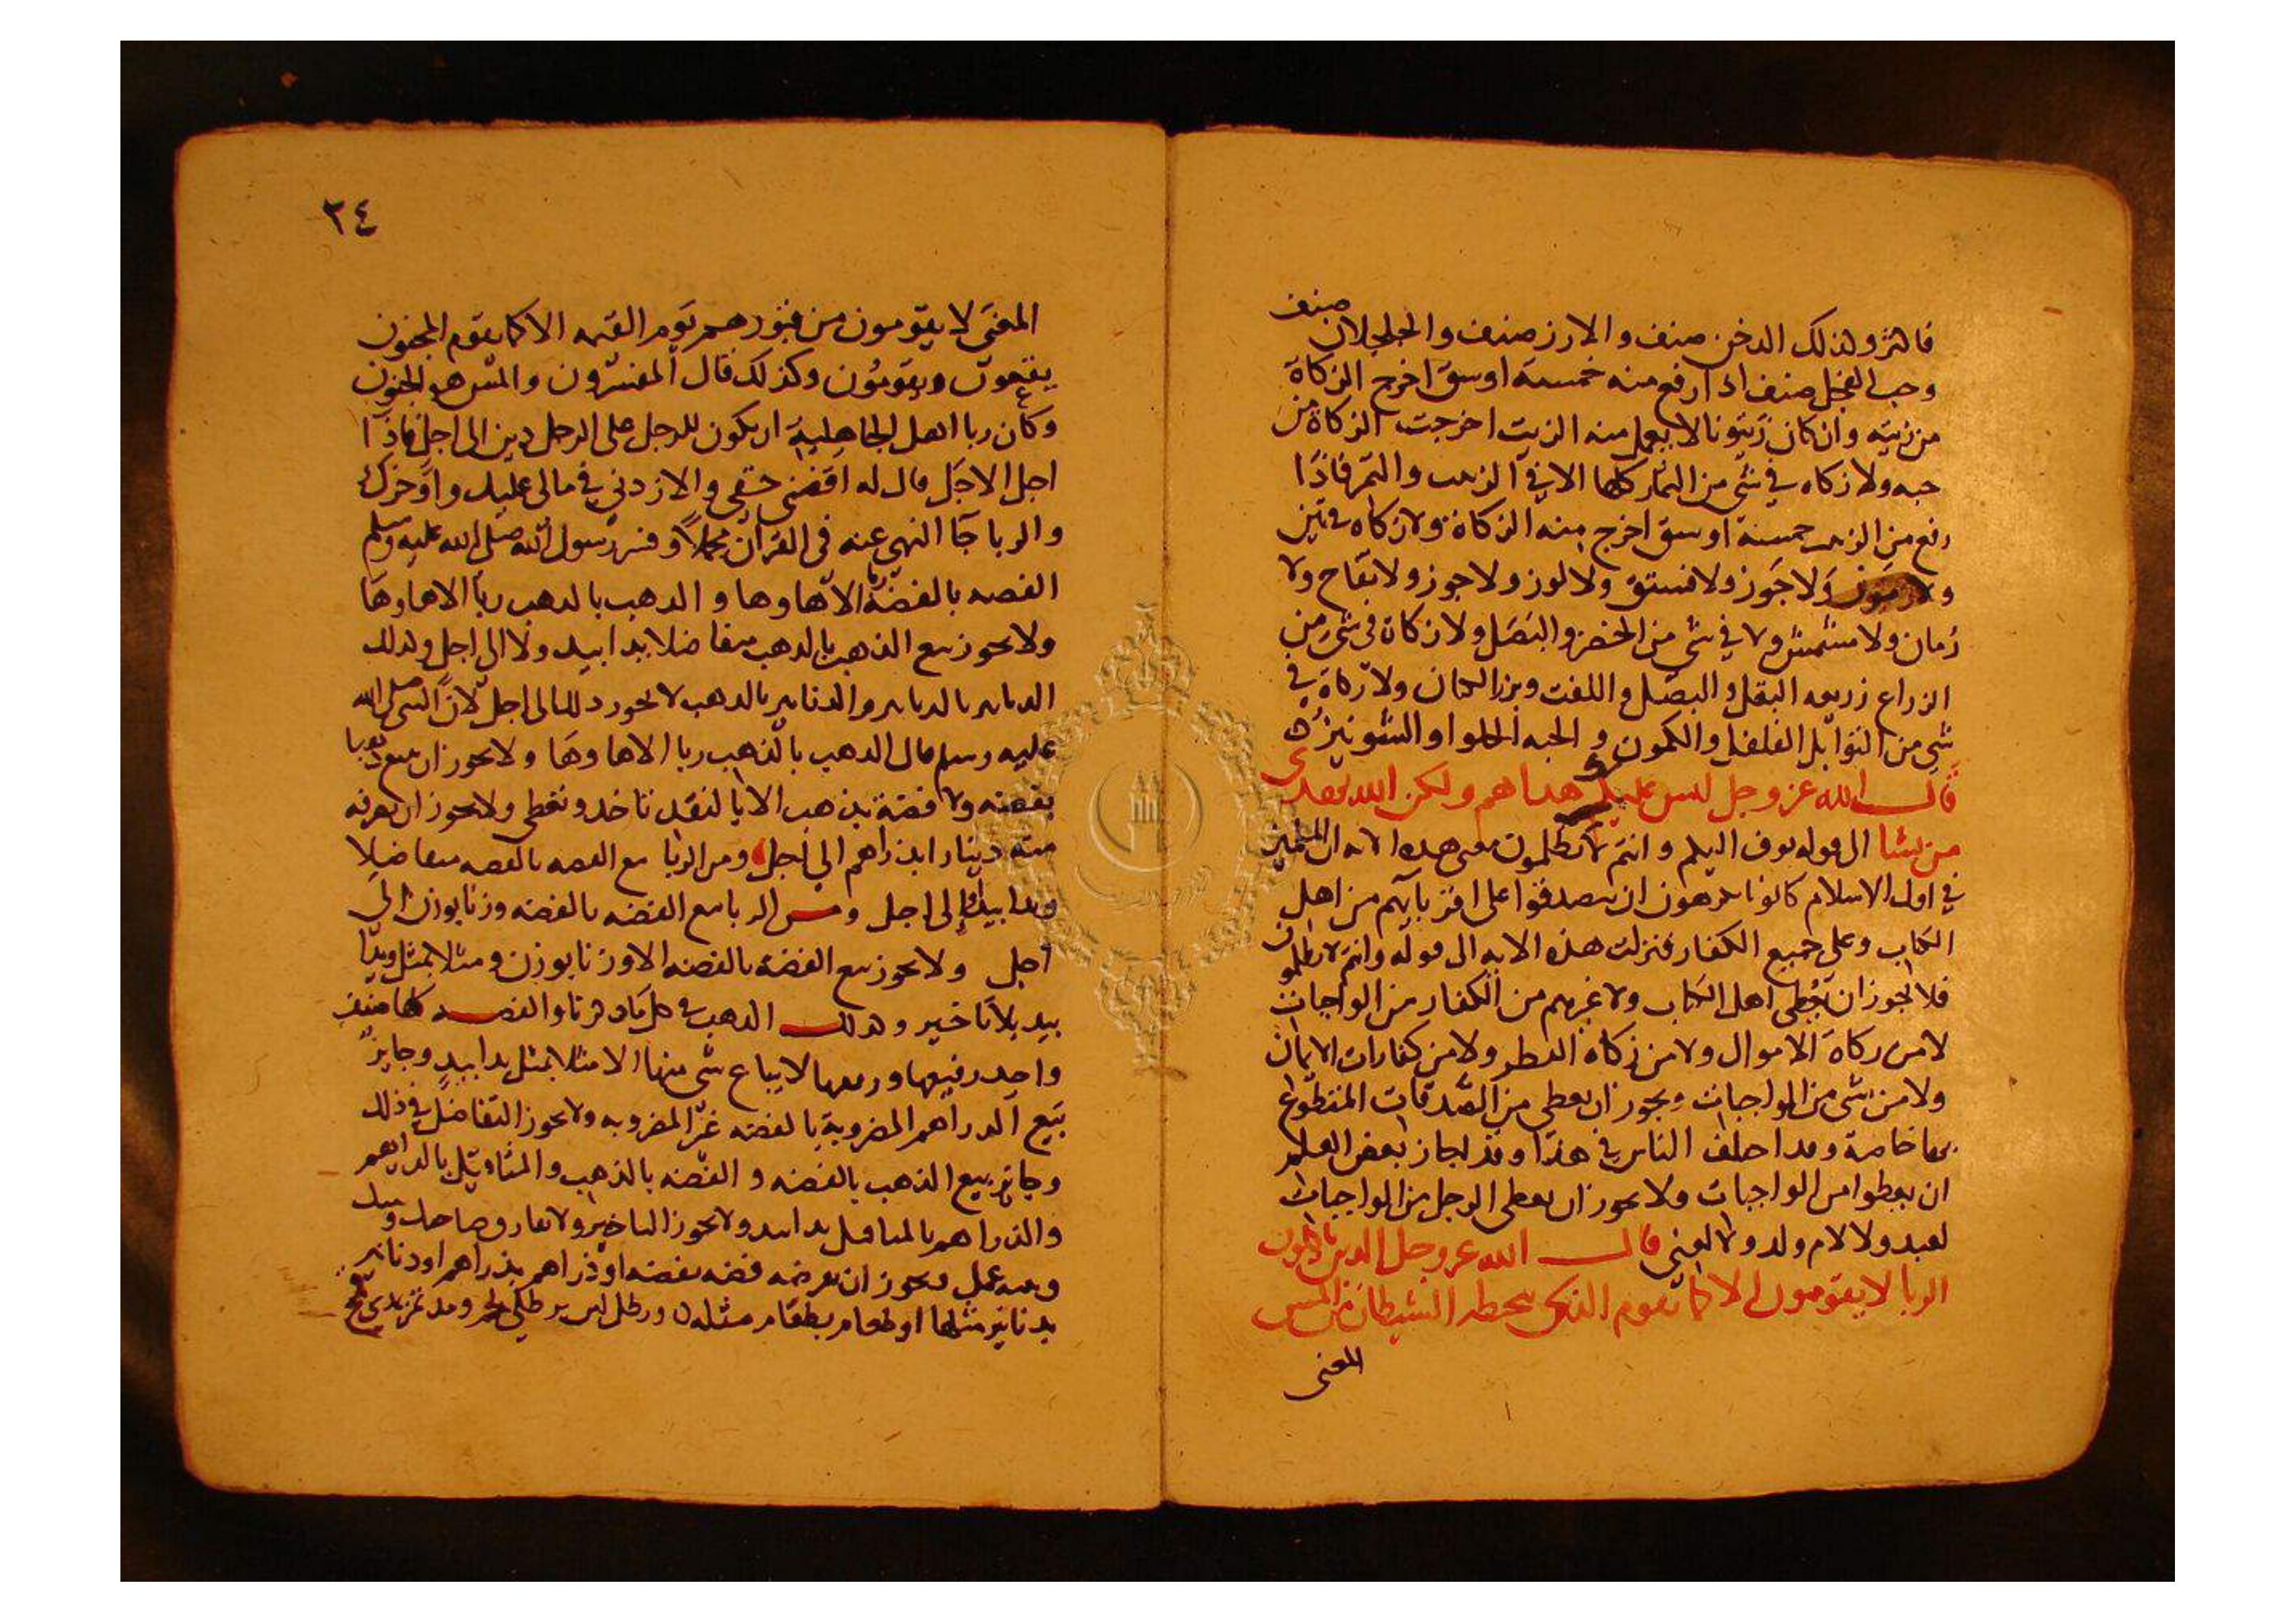 فاكثر وكذلك الدخن صنف والارز صنف والجلجلان صنف
وحب الفجل صنف اذا ارفع منه خمسة اوسق اخرج الزكاة
من زيته وان كان زيتونا لا يعمل منه الزيت اخرجت الزكاة من
حبه ولا زكاه في شي من الثمار كلها الا في الزبيب والتمر فاذا
رفع من الزبيب خمسة اوسق اخرج منه الزكاة ولا زكاه في تين
ولا جوز ولا فستق ولا لوز ولا جوز ولا تفاح ولا
رمان ولا مشمش ولا في شي من الخضر والبصل ولا زكاة في شي من
الزراع زريعه البقل والبصل واللفت وبزر الكتان ولا زكاة في
شي من التوابل الفلفل والكمون والحبه الحلوا والشونيز
قال الله عز وجل ليس عليك هداهم ولكن الله يهدي
من يشا الى قوله يوف اليكم وانتم لا تظلمون معنى هذه الايه ان المسلمين
في اول الاسلام كانوا يكرهون ان يتصدقوا على اقربايهم من اهل
الكتاب وعلى جميع الكفار فنزلت هذه الايه الى قوله وانتم لا تظلمون
فلا يجوز ان يعطى اهل الكتاب ولا غيرهم من الكفار من الواجبات
لا من زكاة الاموال ولا من زكاة الفطر ولا من كفارات الايمان
ولا من شي من الواجبات ويجوز ان يعطى من الصدقات المتطوع
بها خاصة وقد اختلف الناس في هذا وقد اجاز بعض العلم
ان يعطوا من الواجبات ولا يجوز ان يعطى الرجل من الواجبات
لعبد ولا لام ولد ولا لغني قال الله عز وجل الذين ياكلون
الربا لا يقومون الا كما يقوم الذي يتخبطه الشيطان من المس
المعنى
٢٤
المعنى لا يقومون من قبورهم يوم القيمه الا كما يقوم المجنون
يقعون ويقومون وكذلك قال المفسرون والمس هو الجنون
وكان ربا اهل الجاهلية ان يكون للرجل على الرجل دين الى اجل فاذا
اجل الاجل قال له اقضني حقي والا زدني في مالي عليك واوخرك
والربا جا النهي عنه في القران مجملا وفسر رسول الله صلى الله عليه وسلم
الفضه بالفضة ربا الا ها وها والذهب بالذهب ربا الا ها وها
ولا يجوز بيع الذهب بالذهب متفاضلا يدا بيد ولا الى اجل وكذلك
الدنانير بالدنانير والدنانير بالذهب لا يجوز ذلك الى اجل لان النبي صلى الله
عليه وسلم قال الذهب بالذهب ربا الا ها وها ولا يجوز ان يبيع ذهبا
بفضه ولا فضة بذهب الا بالنقد تاخذ وتعطي ولا يجوز ان يصرفه
منه دينارا بدراهم الى اجل ومن الربا بيع الفضه بالفضه متفاضلا
يدا بيد الى اجل ومن الربا بيع الفضه بالفضه وزنا بوزن الى
اجل ولا يجوز بيع الفضة بالفضه الا وزنا بوزن ومثلا بمثل ويدا
بيد بلا تاخير وكذلك الذهب في كل ما ذكرنا والفضه كلها صنف
واحد رفيعها ورديها لا يباع شي منها الا مثلا بمثل يدا بيد وجايز
بيع الدراهم المضروبة بالفضه غير المضروبه ولا يجوز التفاضل في ذلك
وجايز بيع الذهب بالفضه والفضه بالذهب والمثاقيل بالدراهم
والدراهم بالمثاقيل يدا بيد ولا يجوز التاخير ولا يفارق صاحبك وبينك
وبينه عمل ويجوز ان يقرضه فضه بفضه او دراهم بدراهم او دنانير
بدنانير مثلها او طعام بطعام مثله